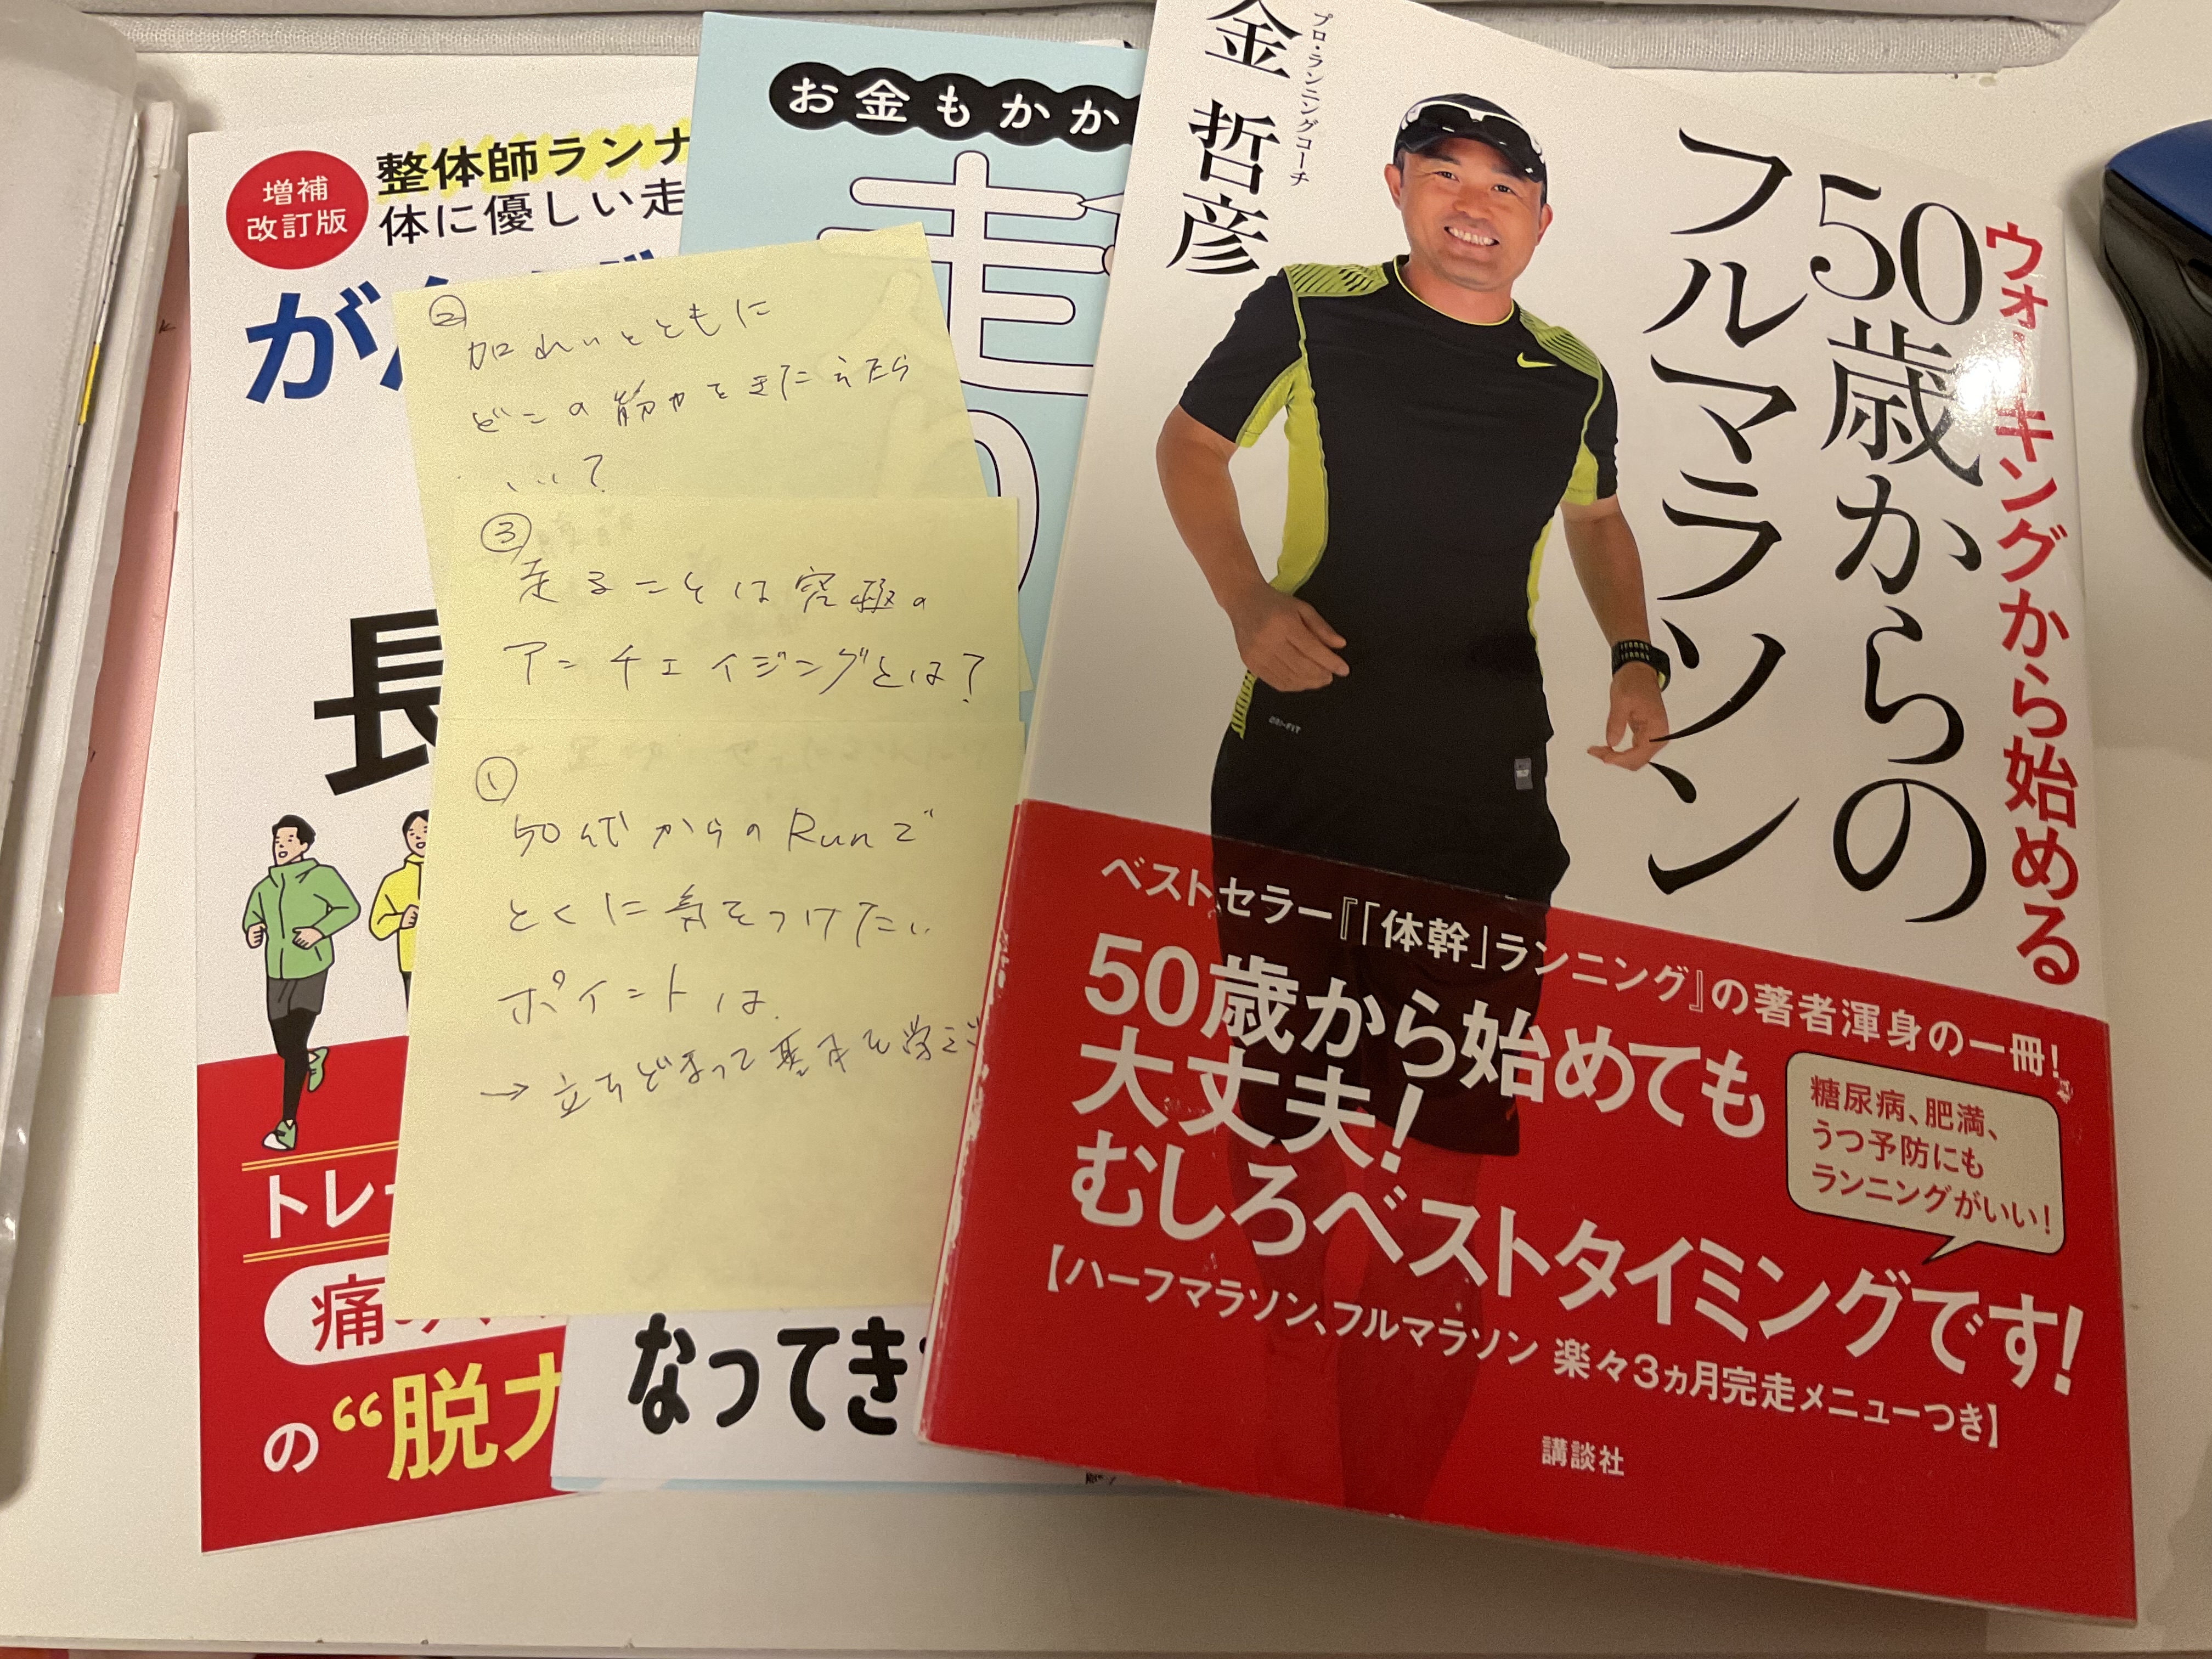 増補
改訂版
整体師ランナ
体に優しい走
が
長
トレ
痛
の“脱力
お金もかか
走
なってきた
②
加れいとともに
どこの筋力をきたえたら
いい?
③
走ることは究極の
アンチエイジングとは?
①
50代からのRunで
とくに気をつけたい
ポイントは
→立ちどまって基本を学ぶ
プロ・ランニングコーチ
金 哲彦
ウォーキングから始める
50歳からの
フルマラソン
DRI-FIT
ベストセラー『「体幹」ランニング』の著者渾身の一冊!
50歳から始めても
大丈夫!
むしろベストタイミングです!
糖尿病、肥満、
うつ予防にも
ランニングがいい!
【ハーフマラソン、フルマラソン 楽々3ヵ月完走メニューつき】
講談社